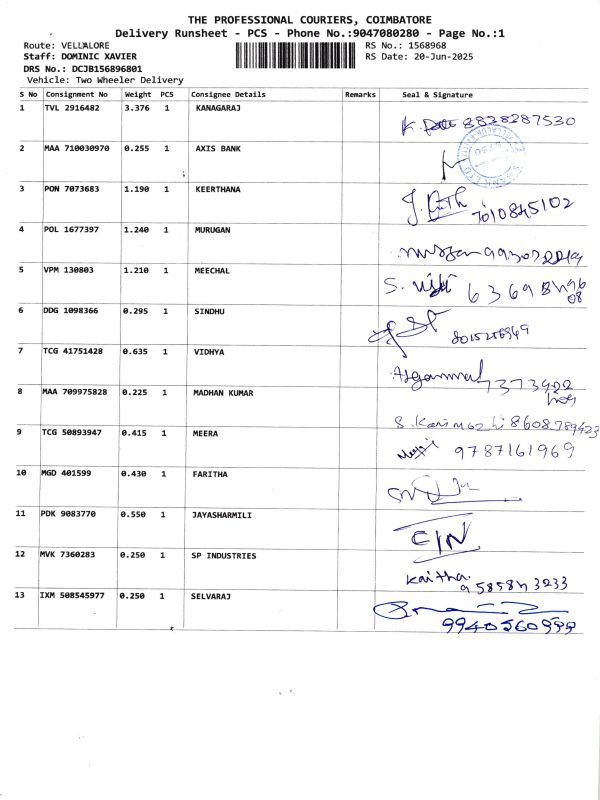 THE PROFESSIONAL COURIERS, COIMBATORE
Delivery Runsheet - PCS - Phone No.:9047080280 - Page No.:1
Route: VELLALORE
RS No.: 1568968
Staff: DOMINIC XAVIER
RS Date: 20-Jun-2025
DRS No.: DCJB156896801
Vehicle: Two Wheeler Delivery
S No Consignment No Weight PCS Consignee Details Remarks Seal & Signature
1 TVL 2916482 3.376 1 KANAGARAJ
8828287530
2 MAA 710030970 0.255 1 AXIS BANK
3 PON 7073683 1.190 1 KEERTHANA
7010845102
4 POL 1677397 1.240 1 MURUGAN
5 VPM 130803 1.210 1 MEECHAL
S.
6 DDG 1098366 0.295 1 SINDHU
7 TCG 41751428 0.635 1 VIDHYA
8 MAA 709975828 0.225 1 MADHAN KUMAR
8608789423
9 TCG 50893947 0.415 1 MEERA
9787161969
10 MGD 401599 0.430 1 FARITHA
11 PDK 9083770 0.550 1 JAYASHARMILI
12 MVK 7360283 0.250 1 SP INDUSTRIES
Kaitha
13 IXM 508545977 0.250 1 SELVARAJ